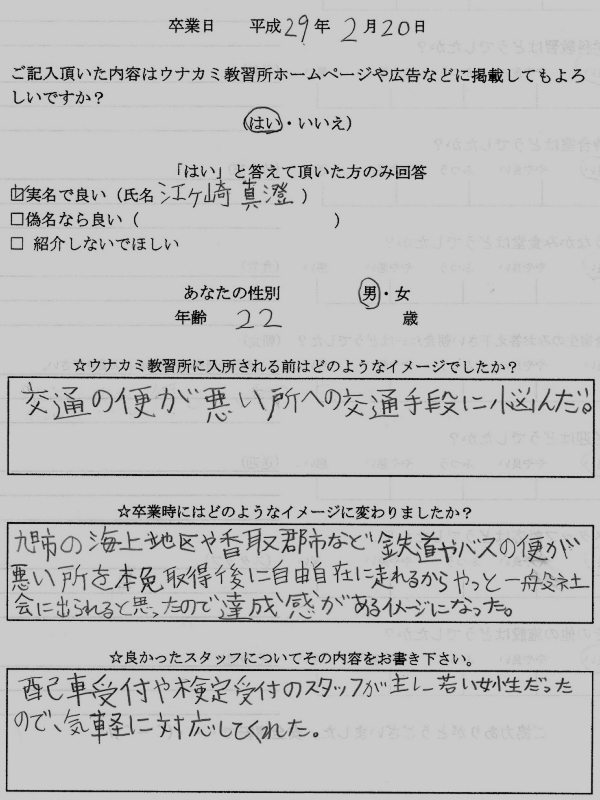 卒業日 平成29年 2月20日
ご記入頂いた内容はウナカミ教習所ホームページや広告などに掲載してもよろ
しいですか?
(はい・いいえ)
「はい」と答えて頂いた方のみ回答
☑実名で良い（氏名 江ケ崎 真澄 ）
□偽名なら良い（ ）
□ 紹介しないでほしい
あなたの性別 男・女
年齢 22 歳
☆ウナカミ教習所に入所される前はどのようなイメージでしたか?
交通の便が悪い所への交通手段に悩んだ。
☆卒業時にはどのようなイメージに変わりましたか?
旭市の海上地区や香取郡市など鉄道やバスの便が
悪い所を本免取得後に自由自在に走れるからやっと一般社
会に出られると思ったので達成感があるイメージになった。
☆良かったスタッフについてその内容をお書き下さい。
配車受付や検定受付のスタッフが主し若い女性だった
ので、気軽に対応してくれた。